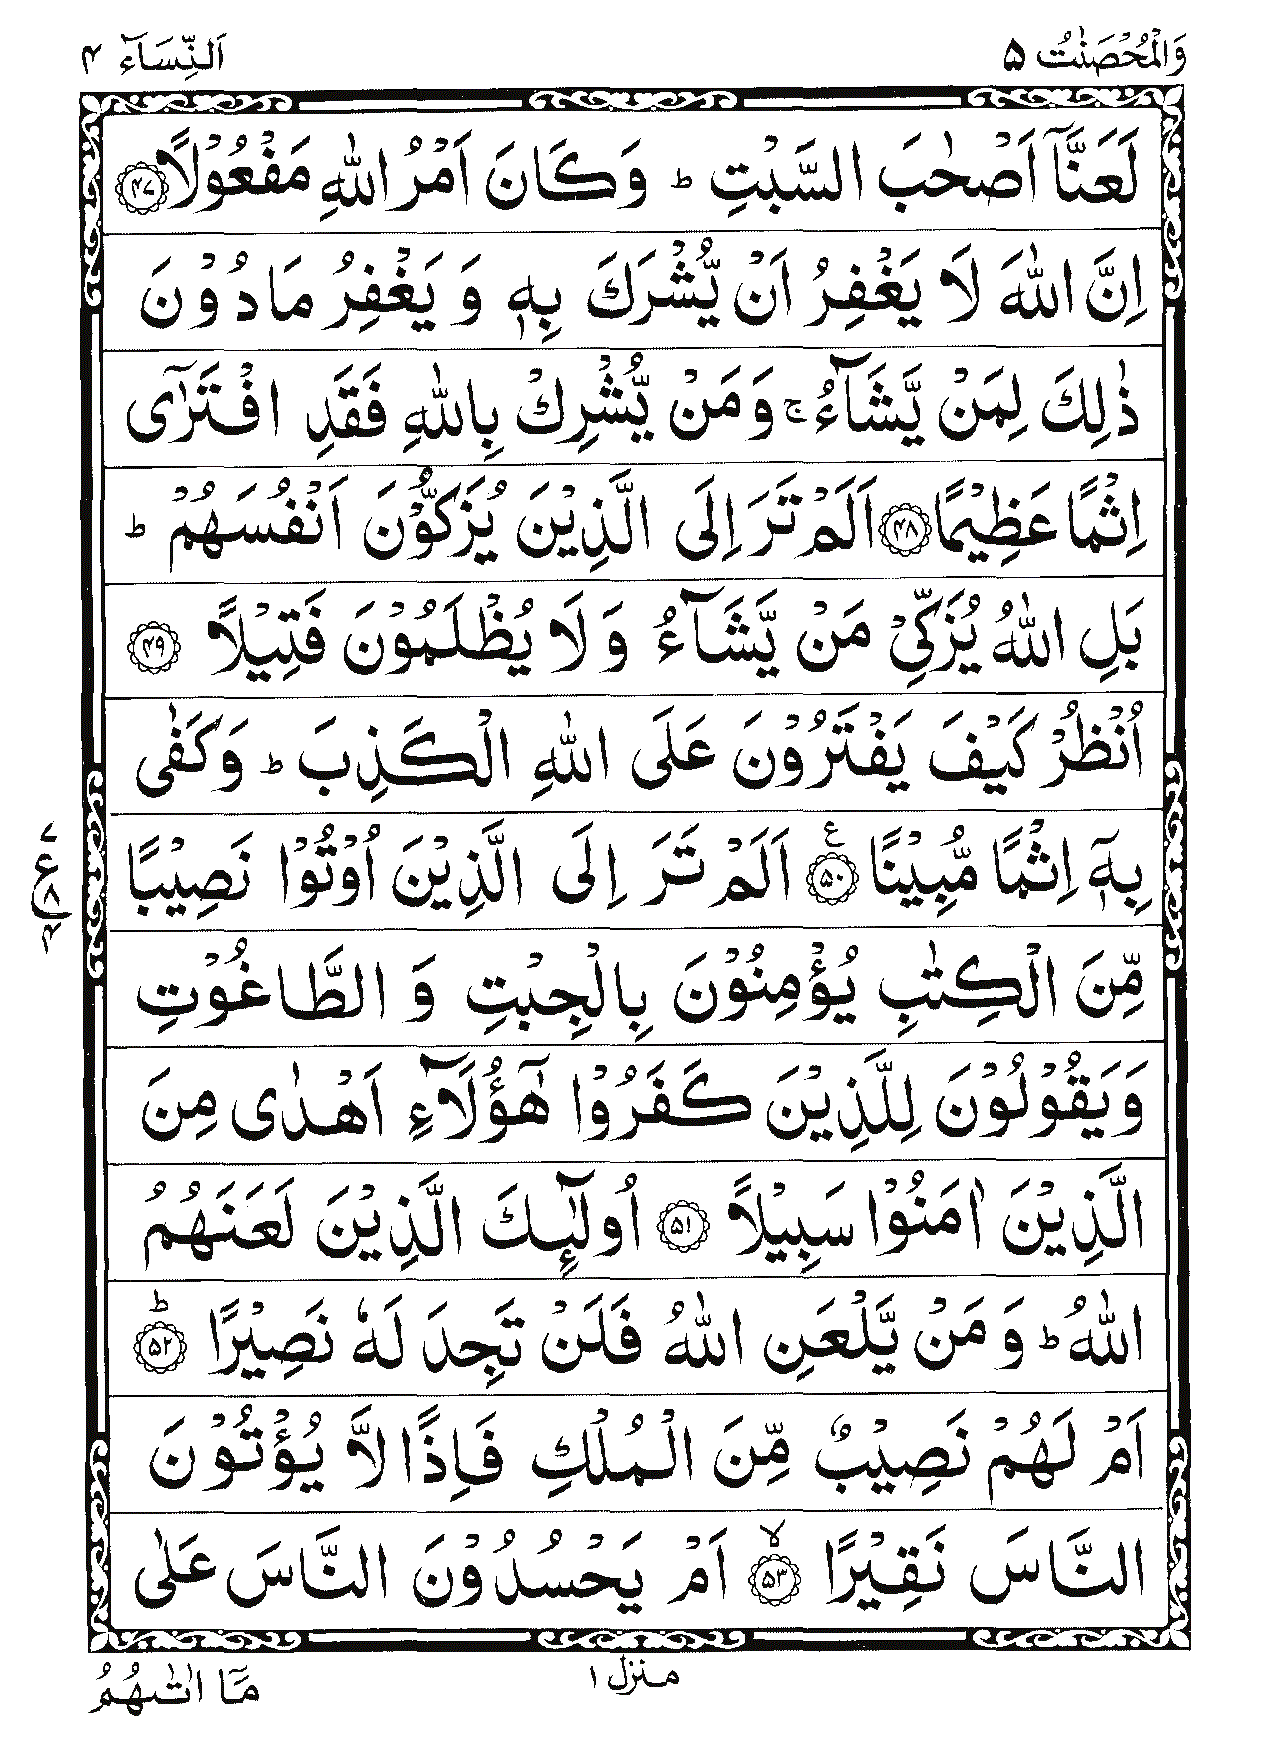 وَالْمُحْصَنٰتُ ۵ اَلنِّسَآءِ ۴
لَعَنَّاۤ اَصْحٰبَ السَّبْتِ ؕ وَكَانَ اَمْرُ اللّٰهِ مَفْعُوْلًا ﴿۴۷﴾
اِنَّ اللّٰهَ لَا يَغْفِرُ اَنْ يُّشْرَكَ بِهٖ وَ يَغْفِرُ مَا دُوْنَ
ذٰلِكَ لِمَنْ يَّشَآءُ ۚ وَمَنْ يُّشْرِكْ بِاللّٰهِ فَقَدِ افْتَرٰۤى
اِثْمًا عَظِيْمًا ﴿۴۸﴾ اَلَمْ تَرَ اِلَى الَّذِيْنَ يُزَكُّوْنَ اَنْفُسَهُمْ ؕ
بَلِ اللّٰهُ يُزَكِّيْ مَنْ يَّشَآءُ وَ لَا يُظْلَمُوْنَ فَتِيْلًا ﴿۴۹﴾
اُنْظُرْ كَيْفَ يَفْتَرُوْنَ عَلَى اللّٰهِ الْكَذِبَ ؕ وَكَفٰى
بِهٖۤ اِثْمًا مُّبِيْنًا ﴿۵۰﴾ ع اَلَمْ تَرَ اِلَى الَّذِيْنَ اُوْتُوْا نَصِيْبًا
۷
ع
۸
۴
مِّنَ الْكِتٰبِ يُؤْمِنُوْنَ بِالْجِبْتِ وَ الطَّاغُوْتِ
وَيَقُوْلُوْنَ لِلَّذِيْنَ كَفَرُوْا هٰۤؤُلَآءِ اَهْدٰى مِنَ
الَّذِيْنَ اٰمَنُوْا سَبِيْلًا ﴿۵۱﴾ اُولٰٓئِكَ الَّذِيْنَ لَعَنَهُمُ
اللّٰهُ ؕ وَ مَنْ يَّلْعَنِ اللّٰهُ فَلَنْ تَجِدَ لَهٗ نَصِيْرًا ﴿۵۲﴾ؕ
اَمْ لَهُمْ نَصِيْبٌ مِّنَ الْمُلْكِ فَاِذًا لَّا يُؤْتُوْنَ
النَّاسَ نَقِيْرًا ﴿۵۳﴾ۙ اَمْ يَحْسُدُوْنَ النَّاسَ عَلٰى
منزل ۱
مَاۤ اٰتٰىهُمُ